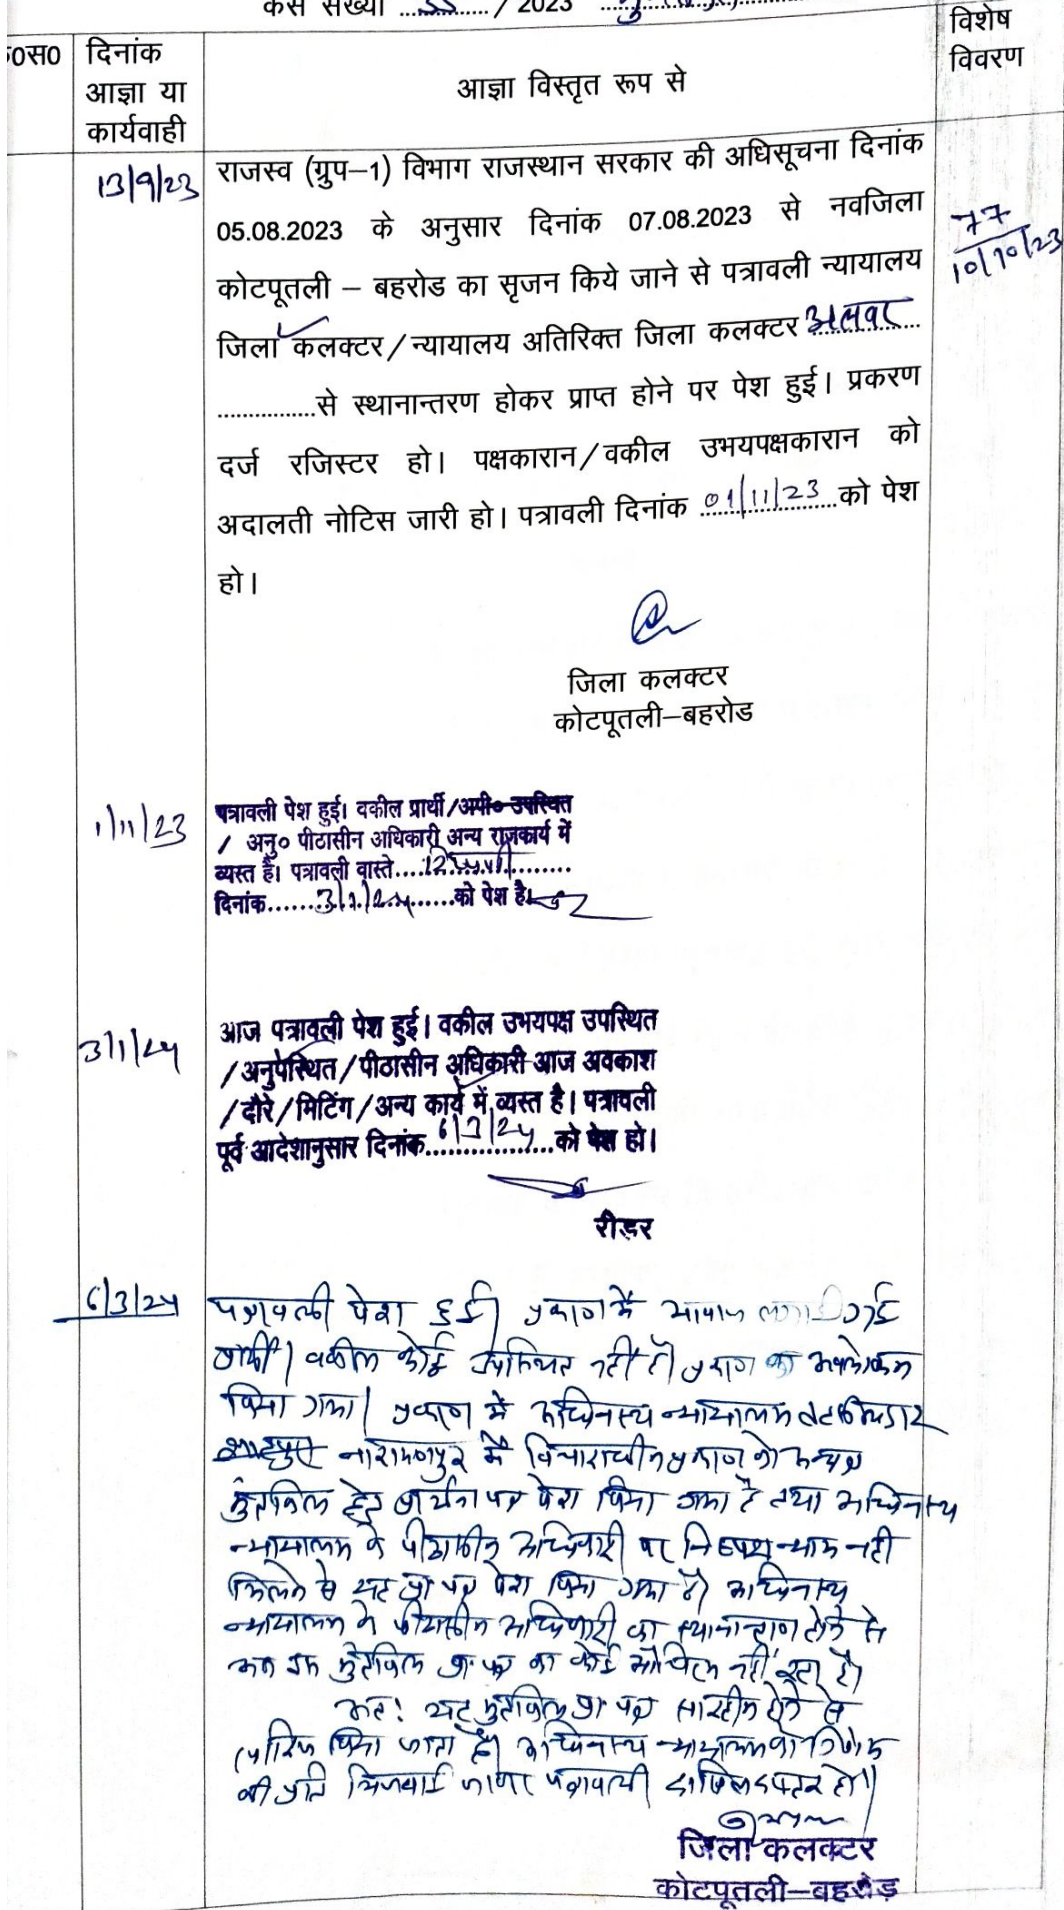 केस संख्या ...... / 2023
०स० दिनांक आज्ञा या कार्यवाही आज्ञा विस्तृत रूप से विशेष विवरण
13/9/23
राजस्व (ग्रुप–1) विभाग राजस्थान सरकार की अधिसूचना दिनांक
05.08.2023 के अनुसार दिनांक 07.08.2023 से नवजिला
77
10/10/23
कोटपूतली – बहरोड का सृजन किये जाने से पत्रावली न्यायालय
जिला कलक्टर/न्यायालय अतिरिक्त जिला कलक्टर अलवर
................से स्थानान्तरण होकर प्राप्त होने पर पेश हुई। प्रकरण
दर्ज रजिस्टर हो। पक्षकारान/वकील उभयपक्षकारान को
अदालती नोटिस जारी हो। पत्रावली दिनांक 01/11/23 को पेश
हो।
जिला कलक्टर
कोटपूतली–बहरोड
1/11/23
पत्रावली पेश हुई। वकील प्रार्थी/अपी० उपस्थित
/ अनु० पीठासीन अधिकारी अन्य राजकार्य में
व्यस्त है। पत्रावली वास्ते
दिनांक.......3/1/24.......को पेश है।
3/1/24
आज पत्रावली पेश हुई। वकील उभयपक्ष उपस्थित
/अनुपस्थित/पीठासीन अधिकारी आज अवकाश
/दौरे/मिटिंग/अन्य कार्य में व्यस्त है। पत्रावली
पूर्व आदेशानुसार दिनांक 6/3/24 को पेश हो।
रीडर
6/3/24
पत्रावली पेश हुई। प्रकरण में आवाज लगाई गई
वकील कोई उपस्थित नहीं है। प्रकरण का अवलोकन
किया गया। प्रकरण में अधिनस्थ न्यायालय तहसीलदार
नारायणपुर में विचाराधीन प्रकरण को अन्यत्र
मुंतकिल हेतु प्रार्थना पत्र पेश किया गया है तथा अधिनस्थ
न्यायालय के पीठासीन अधिकारी पर निष्पक्ष न्याय नही
मिलने से यह प्रा पत्र पेश किया गया है। अधिनस्थ
न्यायालय के पीठासीन अधिकारी का स्थानान्तरण होने से
अब इस मुंतकिल प्रा. पत्र का कोई औचित्य नहीं रहा है।
अतः यह मुंतकिल प्रा पत्र सारहीन होने से
खारिज किया जाता है। अधिनस्थ न्यायालय को निर्णय
की प्रति भिजवाई जावे। पत्रावली दाखिल दफ्तर हो।
जिला कलक्टर
कोटपूतली–बहरोड़